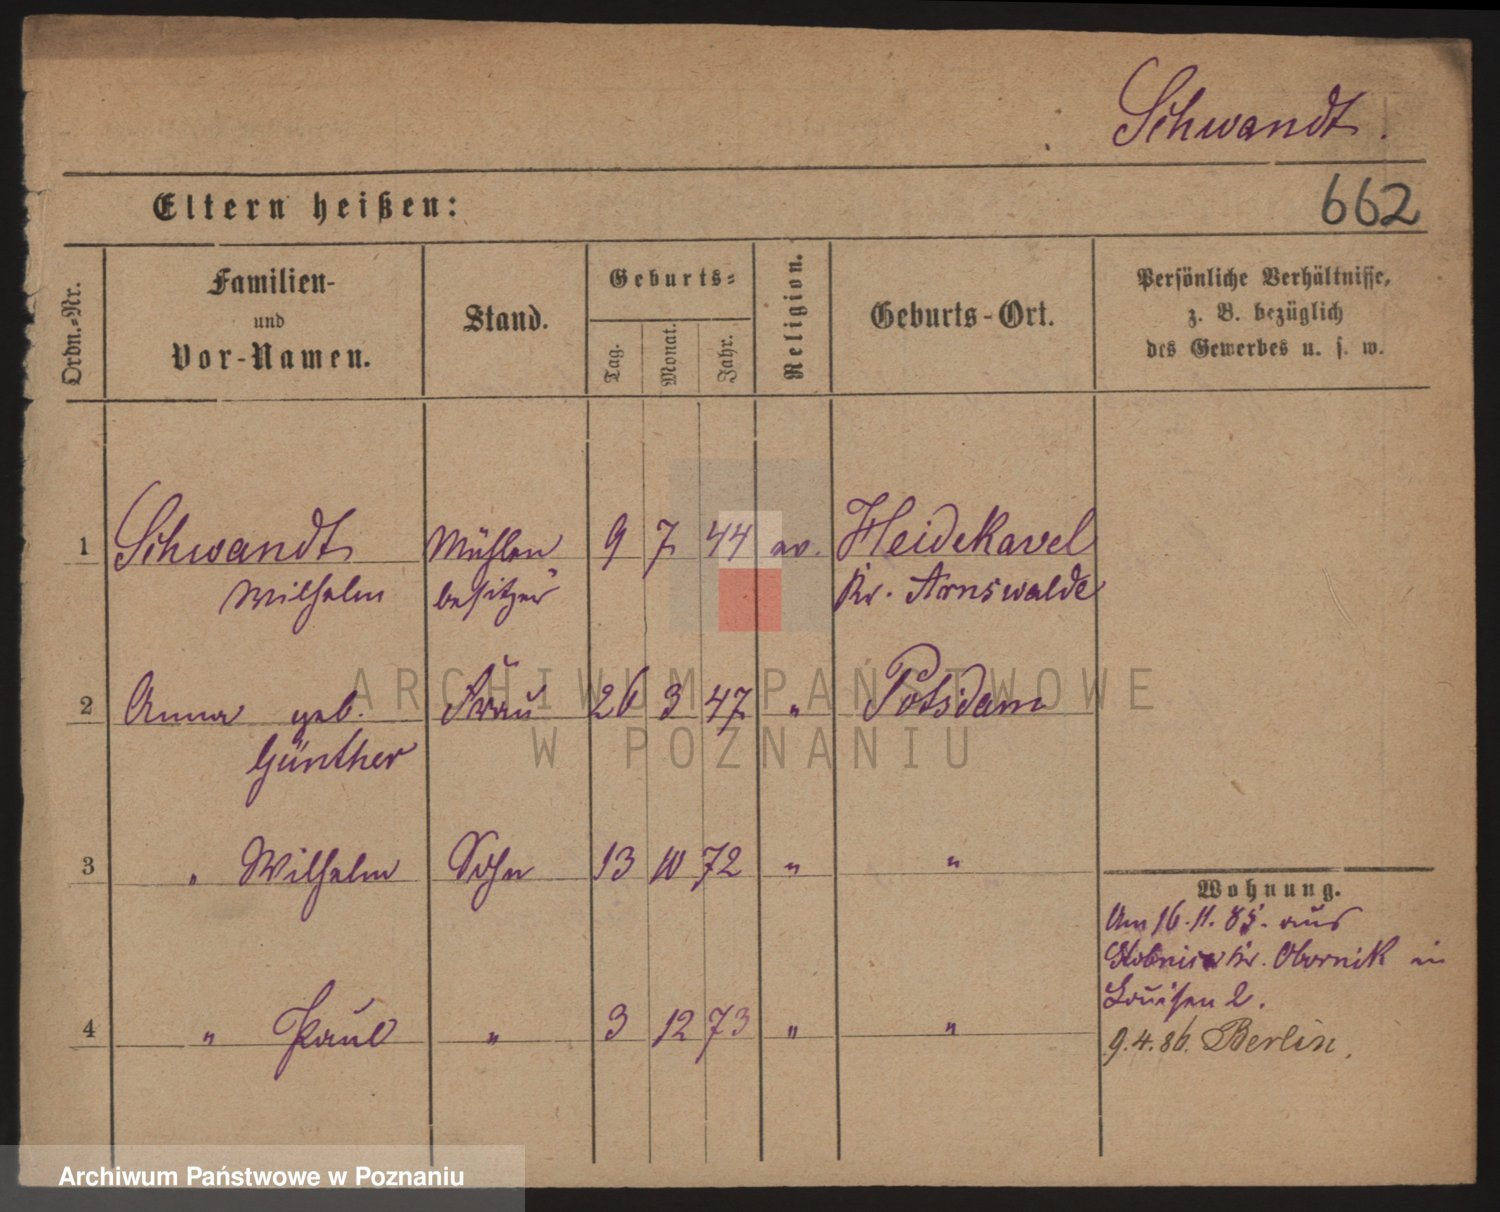 Schwandt.
Eltern heißen:
662
Ordn.-Nr.
Familien-
und
Vor-Namen.
Stand.
Geburts-
Tag.
Monat.
Jahr.
Religion.
Geburts-Ort.
Persönliche Verhältnisse,
z. B. bezüglich
des Gewerbes u. s. w.
1 Schwandt Mühlen 9 7 44 ev. Heidekavel
Wilhelm besitzer Kr. Arnswalde
2 Anna geb. Frau 26 3 47 " Potsdam
Günther
3 " Wilhelm Sohn 13 10 72 " "
4 " Paul " 3 12 73 " "
Wohnung.
Am 16.11.85. aus
Kr. Obornik in
Louisen 2.
9.4.86. Berlin.
ARCHIWUM PAŃSTWOWE
W POZNANIU
Archiwum Państwowe w Poznaniu